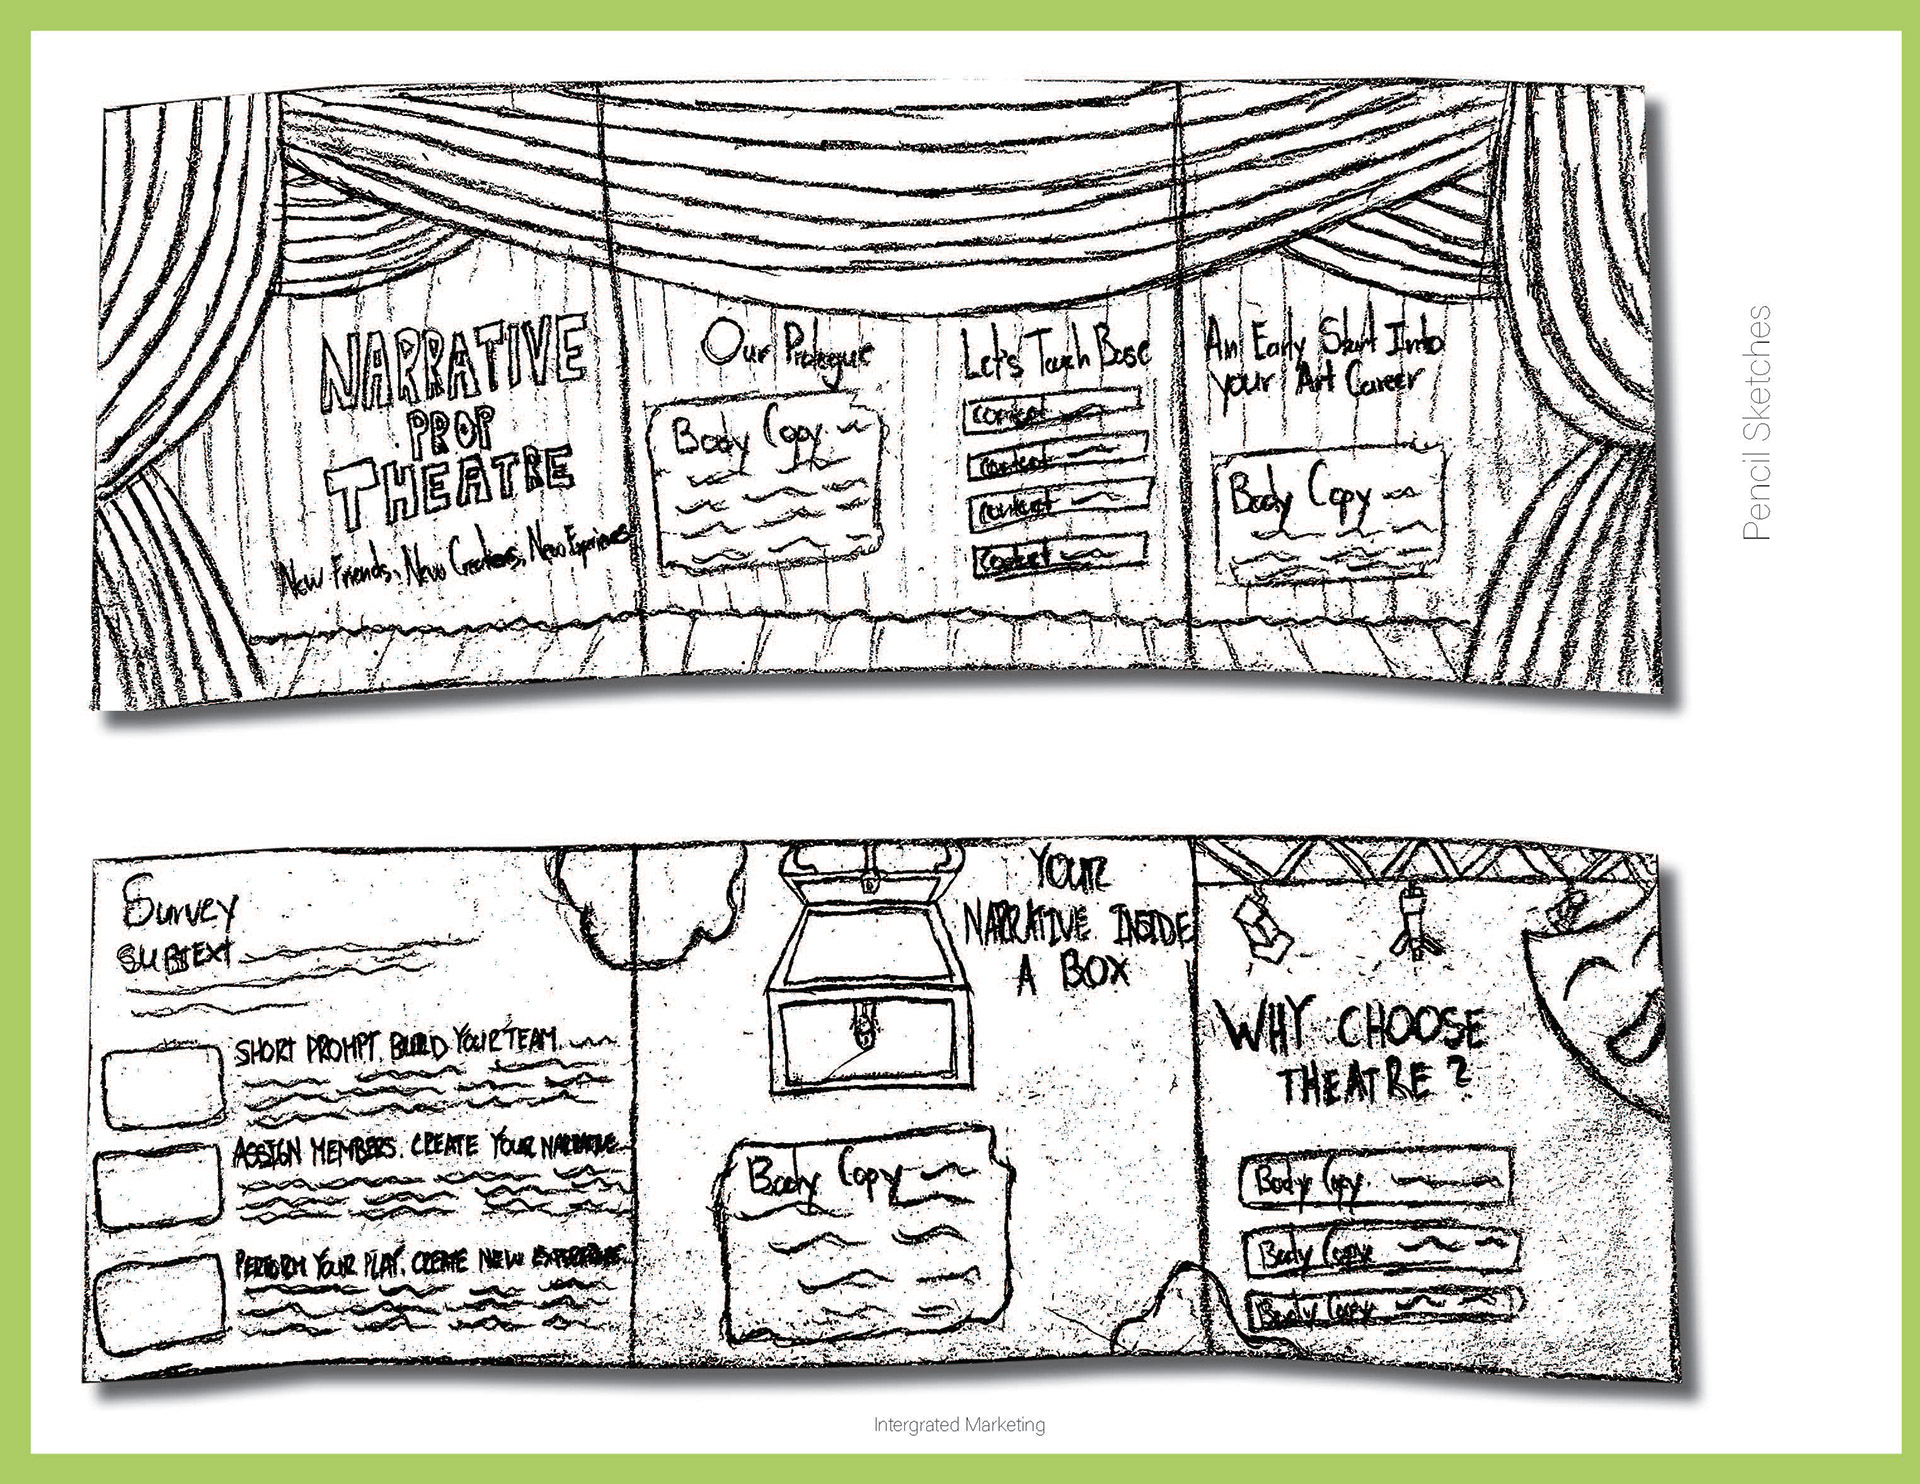 NARRATIVE
PROP
THEATRE
New Friends, New Creators, New Experiences
Our Prologue
Body Copy
Let's Touch Base
content
content
content
content
An Early Start Into
your Art Career
Body Copy
Pencil Sketches
Survey
SUBTEXT
SHORT PROMPT. BUILD YOUR TEAM.
ASSIGN MEMBERS. CREATE YOUR NARRATIVE
PERFORM YOUR PLAY. CREATE NEW EXPERIENCE
YOUR
NARRATIVE INSIDE
A BOX
Body Copy
WHY CHOOSE
THEATRE?
Body Copy
Body Copy
Body Copy
Intergrated Marketing